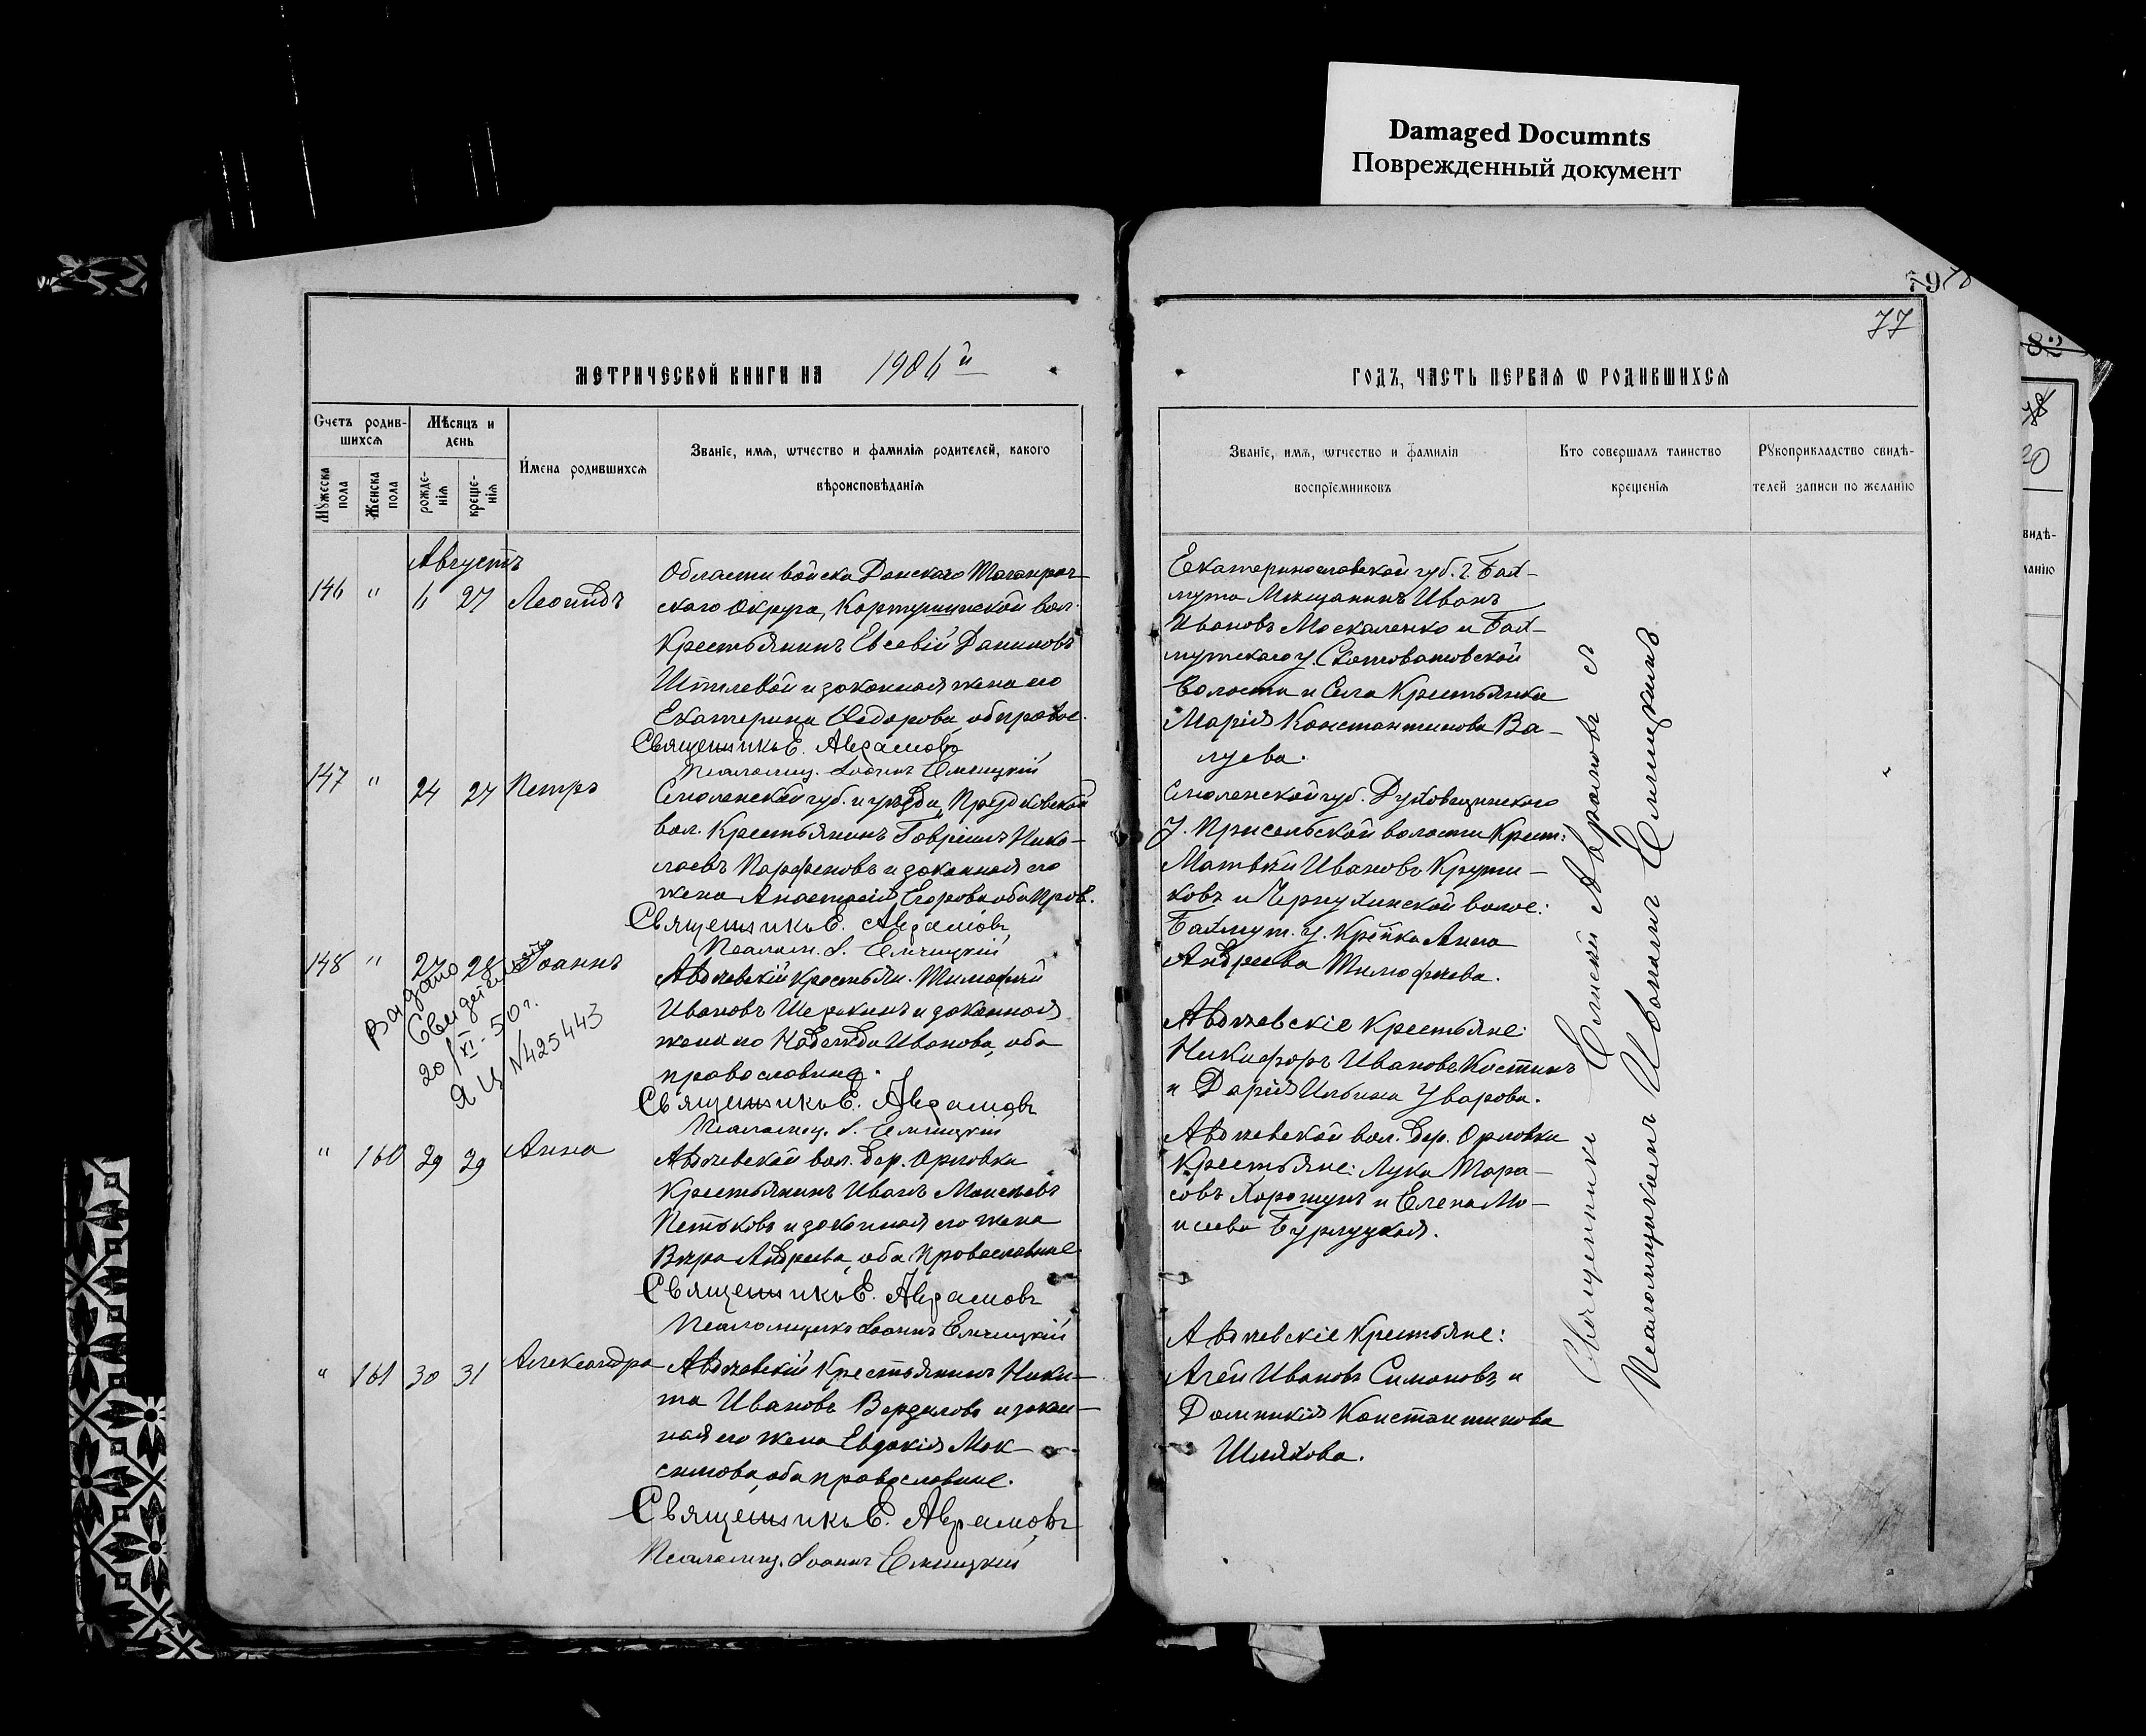 Damaged Documnts
Поврежденный документ
79
77
МЕТРИЧЕСКОЙ КНИГИ НА 1906й
ГОДЪ, ЧАСТЬ ПЕРВАЯ Ѡ РОДИВШИХСЯ
Счетъ родив-
шихся
Мѣсяцъ и
день
Мꙋжеска
пола
Женска
пола
рожде-
нія
креще-
нія
Имена родившихся
Званіе, имя, ѿчество и фамилія родителей, какого
вѣроисповѣданія
Званіе, имя, ѿчество и фамилія
воспріемниковъ
Кто совершалъ таинство
крещенія
Рꙋкоприкладство свидѣ-
телей записи по желанію
Августъ
146 " 6 27 Леонидъ
Области войска Донского Таганрог-
ского округа, вол.
Крестьянинъ Евсевій Даниловъ
и законная жена его
Екатерина Ѳедорова, об. правос.
Священникъ Е. Аврамовъ
Псаломщ. Іоаннъ
Екатеринославской губ. г. Бах-
мута Мещанинъ Иванъ
Ивановъ Москаленко и Бах-
мутского у. Скотоватовской
Волости и Села Крестьянка
Марія Константинова Ва-
луева.
147 " 24 27 Петръ
Смоленской губ. и уѣзда,
вол. Крестьянинъ Гавріилъ Нико-
лаевъ Парфеновъ и законная его
жена Анастасія Егорова оба прав.
Священникъ Е. Аврамовъ
Псалом. І.
Смоленской губ. Духовщинского
у. Присельской волости Крест:
Матвѣй Ивановъ Крути-
ковъ и волос:
Бахмут. у. Кр-нка Анна
Андреева Тимофеева.
148 " 27 28 Іоаннъ
Выдано
Свидетельство
20/XI-50 г.
ЯЦ N425443
Авдѣевскій крестьян. Тимофей
Ивановъ и законная
жена его Надежда Иванова, оба
православные.
Священникъ Е. Аврамовъ
Псаломщ. І.
Авдѣевскіе Крестьяне:
Никифоръ Ивановъ Костинъ
и Дарія Ильина Уварова.
" 160 29 29 Анна
Авдѣевской вол. дер. Орловки
Крестьянинъ Иванъ Моисѣевъ
и законная его жена
Вѣра Андреева, оба православные.
Священникъ Е. Аврамовъ
Псаломщикъ Іоаннъ
Авдѣевской вол. дер. Орловки
Крестьяне: Лука Тара-
совъ Хорошунъ и Елена Мо-
исеева Бурлуцкая.
" 161 30 31 Александра
Авдѣевскій Крестьянинъ Ники-
та Ивановъ и закон-
ная его жена Евдокія Мак-
симова, оба православные.
Священникъ Е. Аврамовъ
Псаломщ. Іоаннъ
Авдѣевскіе Крестьяне:
Агей Ивановъ Симоновъ и
Домникія Константинова
Шляхова.
Священникъ Аврамовъ съ
Псаломщикомъ Иваномъ
82
20
видѣ-
ланію